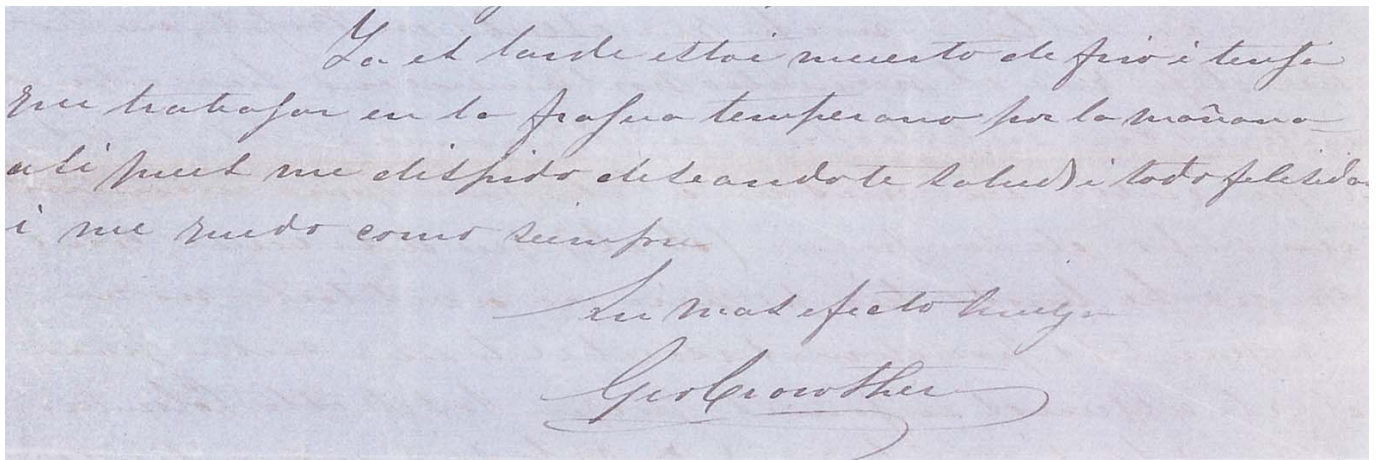 Ya es tarde estoi muerto de frio i tengo
que trabajar en la fragua temperano por la mañana
asi pues me dispido deseandote salud i todo felisidad
i me quedo como siempre
Su mas efecto amigo
Geo Crowther